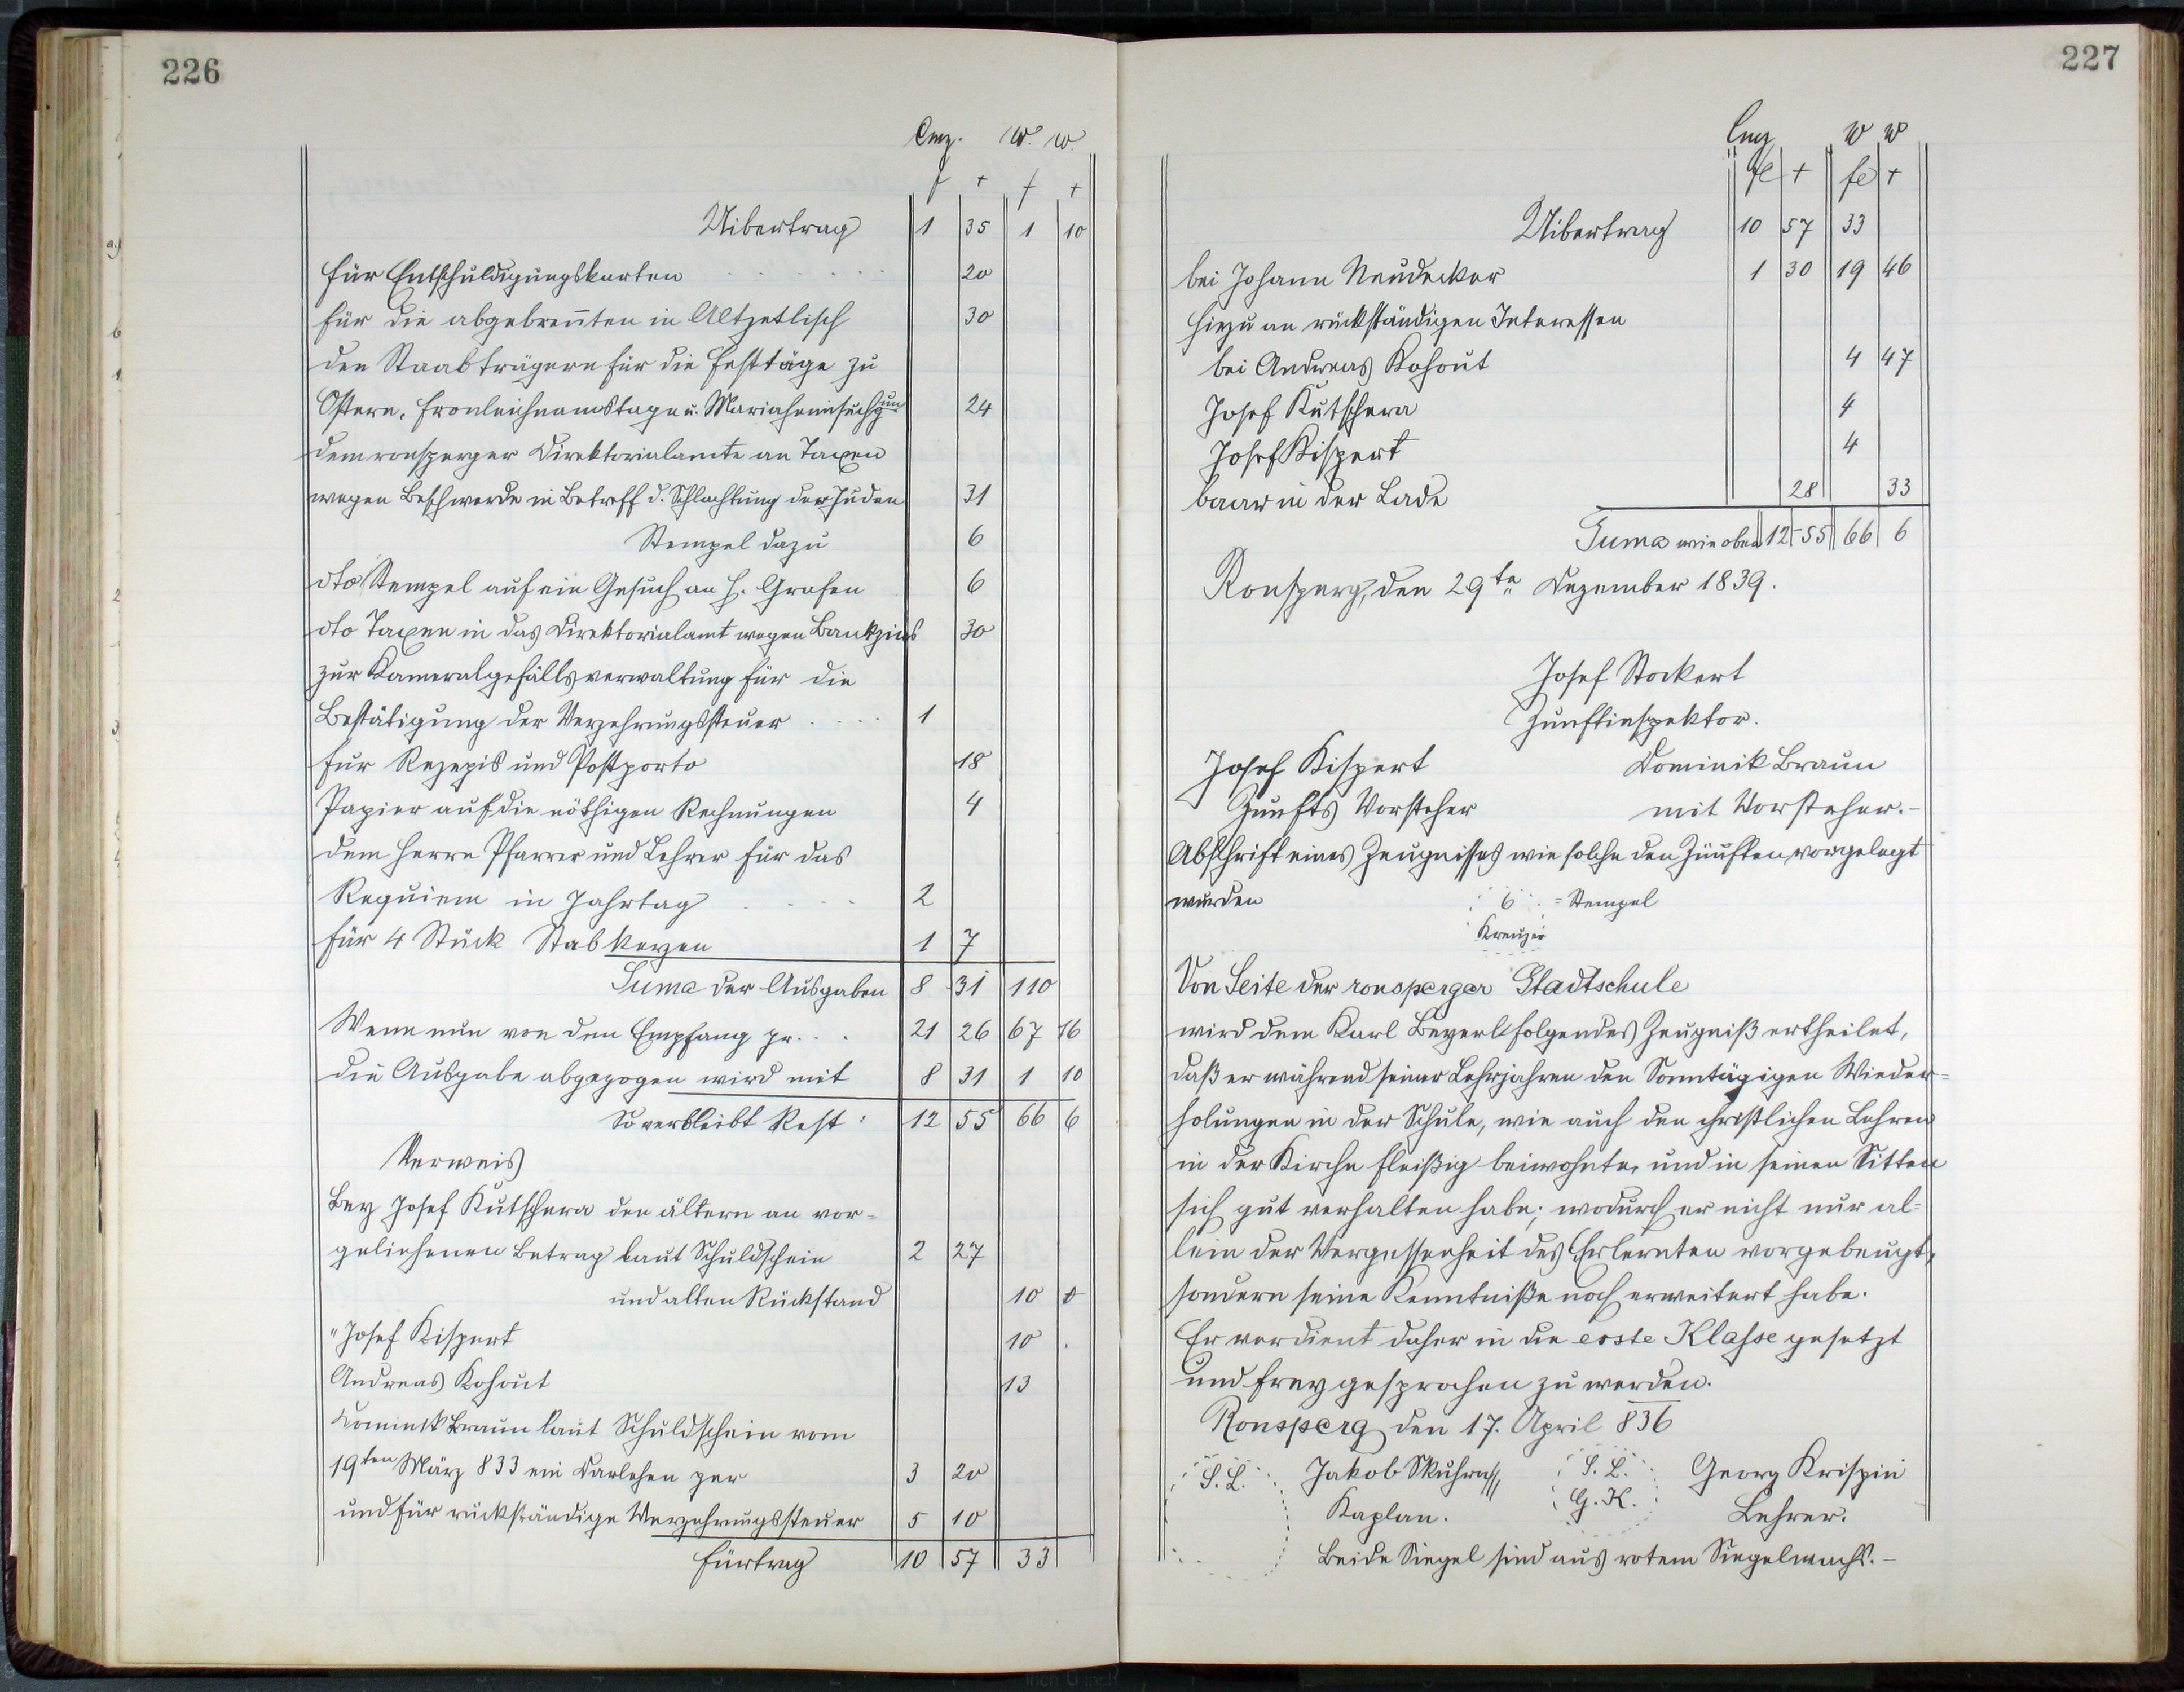 226
Cmz. W. W.
f + f +
Uibertrag 1 35 1 10
für Entschuldigungskarten 20
für die abgebrenten in Altzetlisch 30
den Staabträgern für die Festtäge zu
Ostern, Fronleichnamstage u. Mariaheimsuchgun 24
dem ronsperger Direktorialamte an Taxen
wegen Beschwerde in Betreff d. Schlachtung der Juden 31
Stempel dazu 6
dto Stempel auf ein Gesuch an H. Grafen 6
dto Taxen in das Direktorialamt wegen Bankzins 30
zur Kameralgefällsverwaltung für die
Bestätigung der Verzehrungssteuer 1
für Rezepis und Postporto 18
Papier auf die nöthigen Rechnungen 4
dem Herrn Pfarrer und Lehrer für das
Requiem in Jahrtag 2
für 4 Stück Stabkerzen 1 7
Suma der Ausgaben 8 31 1 10
Wenn nun von den Empfang pr. . . 21 26 67 16
die Ausgabe abgezogen wird mit 8 31 1 10
So verbleibt Rest: 12 55 66 6
Verweis
Bey Josef Kutschera den ältern an vor-
geliehenen Betrag laut Schuldschein 2 27
und alten Rückstand 10 0
" Josef Kispert 10 .
Andreas Kohout 13
Dominik Braun laut Schuldschein vom
19ten März 833 ein Darlehen per 3 20
und für rückständige Verzehrungssteuer 5 10
Fürtrag 10 57 33
227
Cmz W W
fl + fl +
Uibertrag 10 57 33
bei Johann Neudecker 1 30 19 46
hiezu an rückständigen Interessen
bei Andreas Kohout 4 47
Josef Kutschera 4
Josef Kispert 4
baar in der Lade 28 33
Suma wie oben 12 55 66 6
Ronsperg, den 29te Dezember 1839.
Josef Stockert
Zunftinspektor.
Josef Kispert Dominik Braun
Zunfts Vorsteher mit Vorsteher.-
Abschrift eines Zeugnisses wie solche den Zünften vorgelegt
wurden 6 = Stempel
Kreuzer
Von Seite der ronsperger Stadtschule
wird dem Karl Beyerl folgendes Zeugniß ertheilet,
daß er während seiner Lehrjahren den Sonntägigen Wieder=
holungen in der Schule, wie auch den christlichen Lehren
in der Kirche fleißig beiwohnte, und in seinen Sitten
sich gut verhalten habe; wodurch er nicht nur al=
lein der Vergessenheit des Erlernten vorgebeugt,
sondern seine Kenntniße noch erweitert habe.
Er verdient daher in die erste Klasse gesetzt
und freygesprochen zu werden.
Ronsperg den 17. April 836
S. L. Jakob Skuhra S. L. Georg Krispin
Kaplan. G. K. Lehrer.
Beide Siegel sind aus rotem Siegelwachs.-